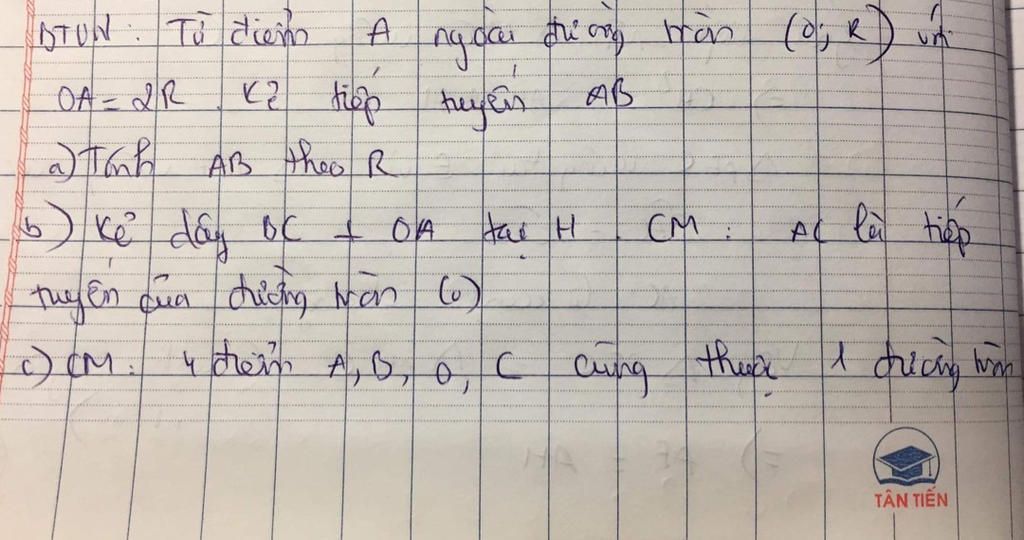 BTVN: Từ điểm A ngoài đường tròn (O; R) với
OA = 2R. Kẻ tiếp tuyến AB
a) Tính AB theo R
b) Kẻ dây BC ⊥ OA tại H. CM: AC là tiếp
tuyến của đường tròn (O)
c) CM: 4 điểm A, B, O, C cùng thuộc 1 đường tròn
TÂN TIẾN